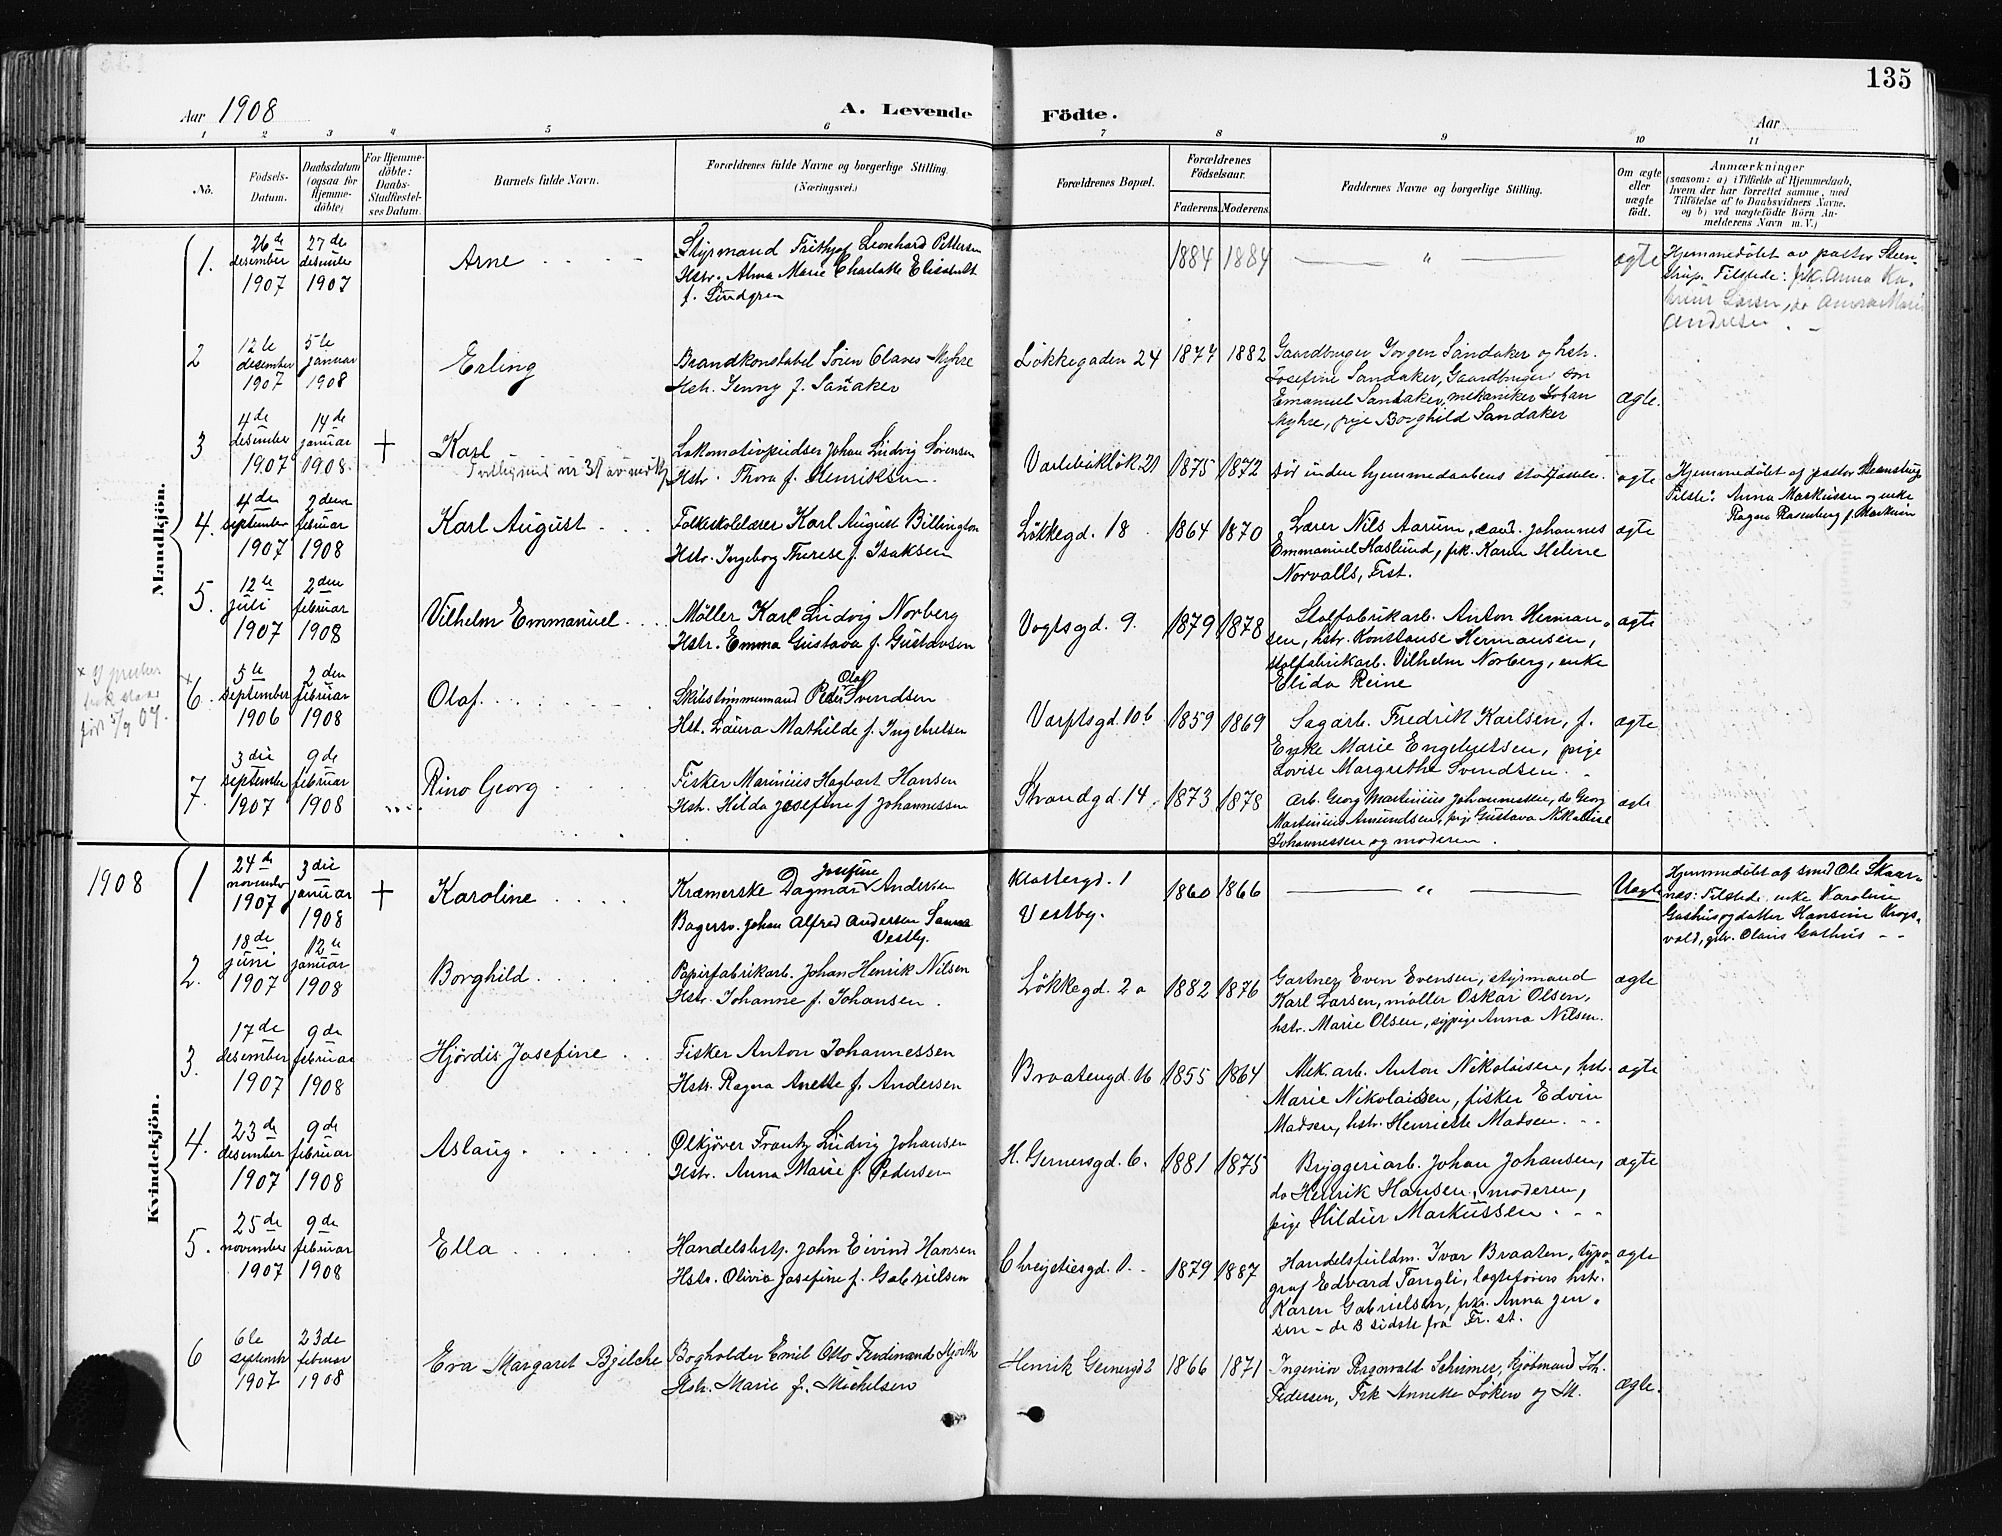 135
Aar 1908
A. Levende
Födte.
Aar
1 2 3 4 5 6 7 8 9 10 11
No.
Födsels-Datum.
Daabsdatum (ogsaa for Hjemme-döbte)
For Hjemme-döbte: Daabs-Stadfæstel-ses Datum.
Barnets fulde Navn.
Forældrenes fulde Navne og borgerlige Stilling. (Næringsvei.)
Forældrenes Bopæl.
Forældrenes Födselsaar.
Faderens. Moderens.
Faddernes Navne og borgerlige Stilling.
Om ægte eller uægte födt.
Anmærkninger
(saasom: a) i Tilfælde af Hjemmedaab, hvem der har forrettet samme, med Tilföielse af to Daabsvidners Navne, og b) ved uægtefödte Börn An-melderens Navn m. V.)
Mandkjön.
1. 26de desember 1907 27de desember 1907
Arne
Styrmand Frithjof Leonhard Pettersen
Hstr. Alma Marie Charlotte Elisabeth
f. Lindgren
1884 1884
— " —
ægte
Hjemmedøbt av pastor Steen-
strup. Tilstede: frk. Anna Ka-
trine Larsen, do Anna Marie
Andresen
2 12te desember 1907 5te januar 1908
Erling
Brandkonstabel Sören Olaves Myhre
Hstr. Jenny f. Sandaker
Løkkegaden 24 1877 1882
Gaardbruger Jørgen Sandaker og hstr.
Josefine Sandaker, Gaardbruger søn
Emanuel Sandaker, mekaniker Johan
Myhre, pige Borghild Sandaker
ægte.
3 4de desember 1907 14de januar 1908. †
Karl
Lokomotivpudser Johan Ludvig Sørensen
Hstr. Thora f. Henriksen.
Varlebukløk. 21 1875 1872
død under hjemmedaabens
ægte
Hjemmedøbt af pastor Steenstrup
Tilste: Anna Markussen og enke
Ragna Rosenberg f. Markussen
4. 4de september 1907 2den februar 1908
Karl August
Folkeskolelærer Karl August Billington
Hstr. Ingeborg Therese f. Isaksen
Løkkegd. 18 1864 1870
Lærer Nils Aarum, cand. Johannes
Emmanuel Haslund, frk. Karen Helene
Norvalls, Frst.
ægte
5. 12te juli 1907 2den februar 1908
Vilhelm Emmanuel
Møller Karl Ludvig Norberg
Hstr. Emma Gustava f. Gustavsen
Vogtsgd. 9. 1879 1878
Stolfabrikarb. Anton Herman-
sen, hstr. Konstanse Hermansen,
stolfabrikarb. Vilhelm Norberg, enke
Elida Reine
ægte
6. 5te september 1906 2den februar 1908
Olaf
Skibstømmermand Peder Olaf Svendsen
Hst. Laura Mathilde f. Ingebretsen
Varftsgd. 10b 1859 1869
Sagarb. Fredrik Karlsen, f.
Enke Marie Engebretsen, pige
Lovise Margrethe Svendsen.
ægte
7. 3die september 1907 9de februar 1908
Rino Georg
Fisker Marinius Hagbart Hansen
Hstr. Hilda Josefine f. Johannessen
Strandgd. 14 1873 1878
Arb. Georg Martinius Johannessen, do Georg
Martinius Amundsen, pige Gustava Nikoline
Johannessen og moderen.
ægte
1908
Kvindekjön.
1 24de november 1907 3die januar 1908 †
Karoline
Kramerske Dagmar Josefine Andersen
Bagersv. Johan Alfred Anderson Sanna
Vestby.
Klostergd. 1
Vestby.
1860 1866
— " —
Uægte
Hjemmedøbt af smed Ole Skaar-
næs: Tilstede enke Karoline
Gashus og datter Hansine Krogs-
vold, gdr. Olaus Gashus
2. 18de juni 1907 12te januar 1908
Borghild
Papirfabrikarb. Johan Henrik Nilsen
Hstr. Johanne f. Johansen.
Løkkegd. 2a 1882 1876
Gartner Even Evensen, styrmand
Karl Larsen, møller Oskar Olsen,
hstr. Marie Olsen, sypige Anna Nilsen.
ægte
3. 17de desember 1907 9de februar 1908
Hjørdis Josefine
Fisker Anton Johannessen
Hstr. Ragna Anette f. Andersen
Braatengd. 16 1855 1864
Mek arb. Anton Nikolaisen, hstr.
Marie Nikolaisen, fisker Edvin
Madsen, hstr. Henriette Madsen.
ægte
4. 23de desember 1907 9de februar 1908
Aslaug
Ølkjører Frantz Ludvig Johansen
Hstr. Anna Marie f. Pedersen
H. Gernersgd. 6. 1881 1875
Bryggeriarb. Johan Johansen,
do Henrik Hansen, moderen,
pige Hildur Markussen.
ægte
5. 25de november 1907 9de februar 1908
Ella
Handelsbetj. John Eivind Hansen
Hstr. Olivia Josefine f. Gabrielsen
Chrystiesgd. 1. 1879 1887
Handelsfuldm. Ivar Braaten, typo-
graf Edvard Tangli, logtførers hstr.
Karen Gabrielsen, frk. Anna Jen-
sen - de 3 sidste fra Fr. st.
ægte
6 6te septembr 1907 23de februar 1908
Eva Margaret Bjelche
Bogholder Emil Otto Ferdinand Hjorth
Hstr. Marie f. Michelsen
Henrik Gernergd 2 1866 1871
Ingeniør Ragnvald Schirmer, Kjøbmand Joh.
Pedersen, Frk Annette Løken og M.
ægte.